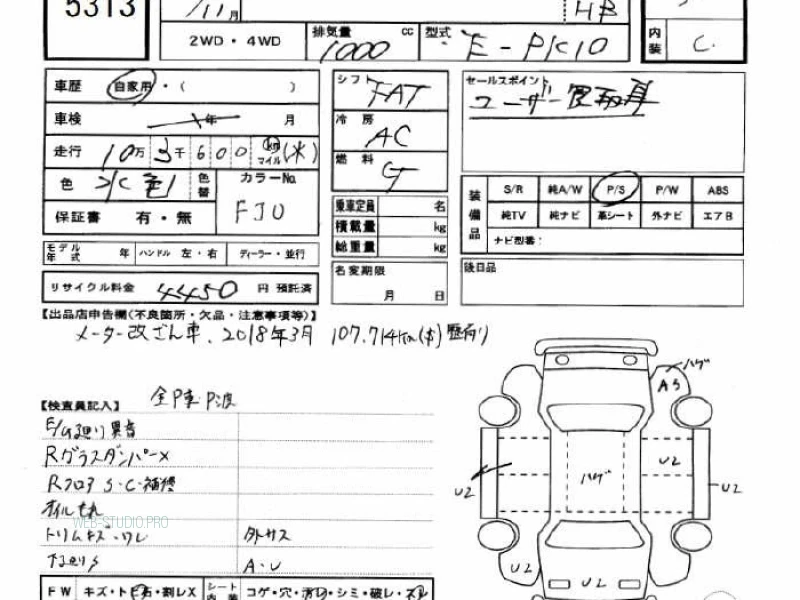 5313
7/11月
HB
2WD・4WD
排気量 1000 cc
型式 E-PK10
内装 C
車歴 自家用・( )
車検 年 月
走行 10万 3千 600 km マイル (*)
色 水色 色替
カラーNo. FJ0
保証書 有・無
シフト FAT
冷房 AC
燃料 G
セールスポイント
ユーザー買取車
装備品
S/R 純A/W P/S P/W ABS
純TV 純ナビ 革シート 外ナビ エアB
ナビ型番:
乗車定員 名
積載量 kg
総重量 kg
名変期限
月 日
後日品
モデル年式 年 ハンドル 左・右 ディーラー・並行
リサイクル料金 4450 円 預託済
【出品店申告欄(不良箇所・欠品・注意事項等)】
メーター改ざん車、2018年3月 107,714km(*)歴有り
【検査員記入】
全P車P波
E/G廻り異音
RガラスダンパーX
Rフロア S・C・補修
オイルもれ
WEB-STUDIO.PRO
トリムキズ・ワレ
外サス
下廻りS
A・U
ハゲ
A3
ハゲ
U2
U2
U2
U2
U2
FW キズ・トビ石・割レX
シート内装 コゲ・穴・汚れ・シミ・破レ・